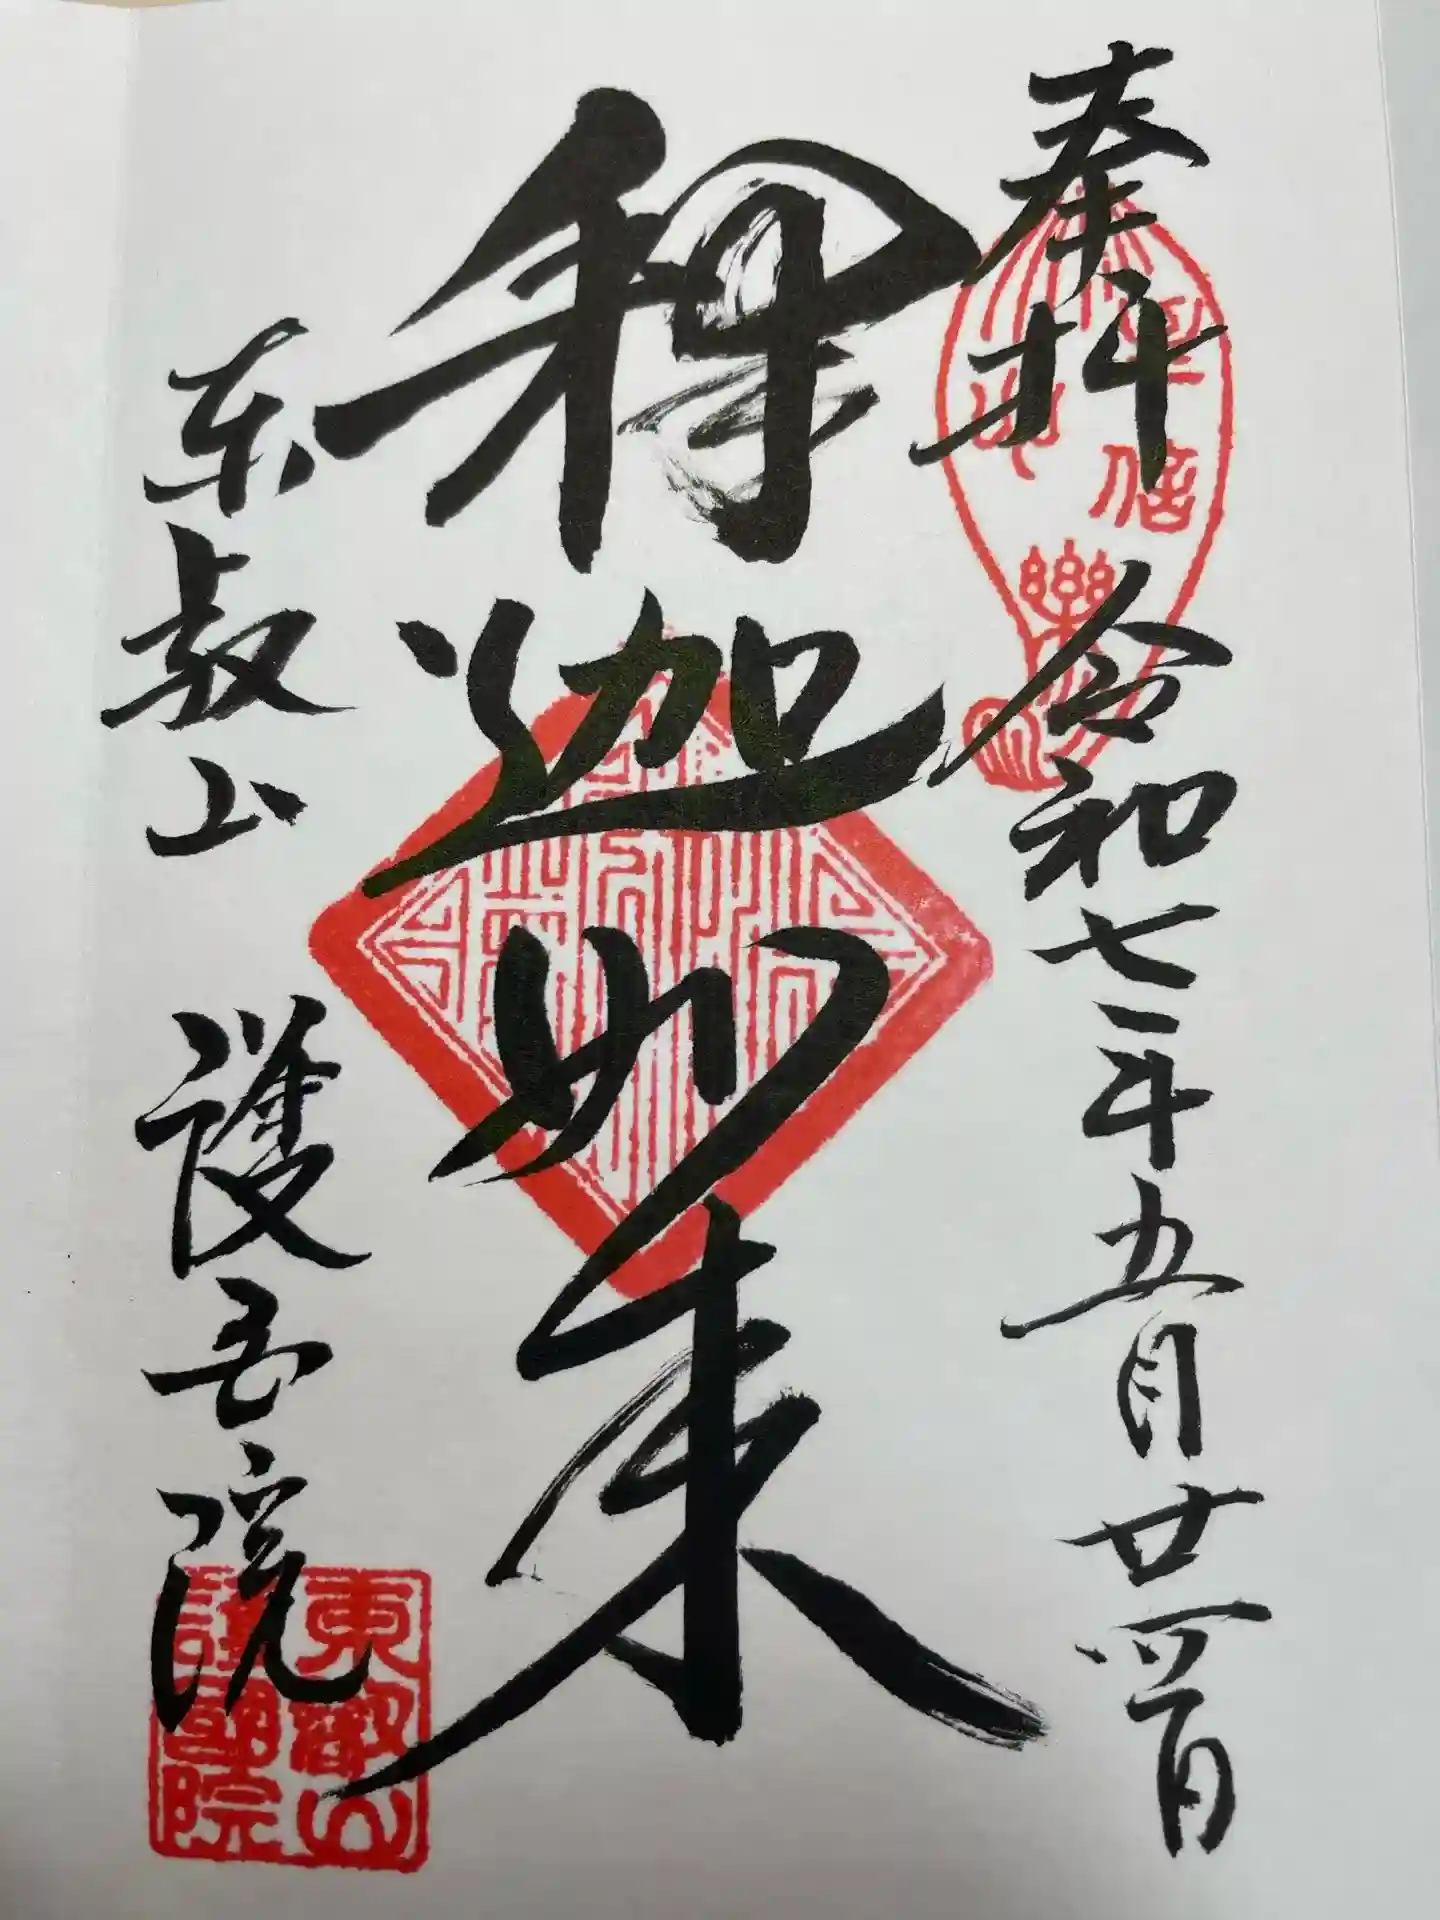 奉拝 令和七年五月廿四日
釈迦如来
東叡山 護国院
東叡山
護國院